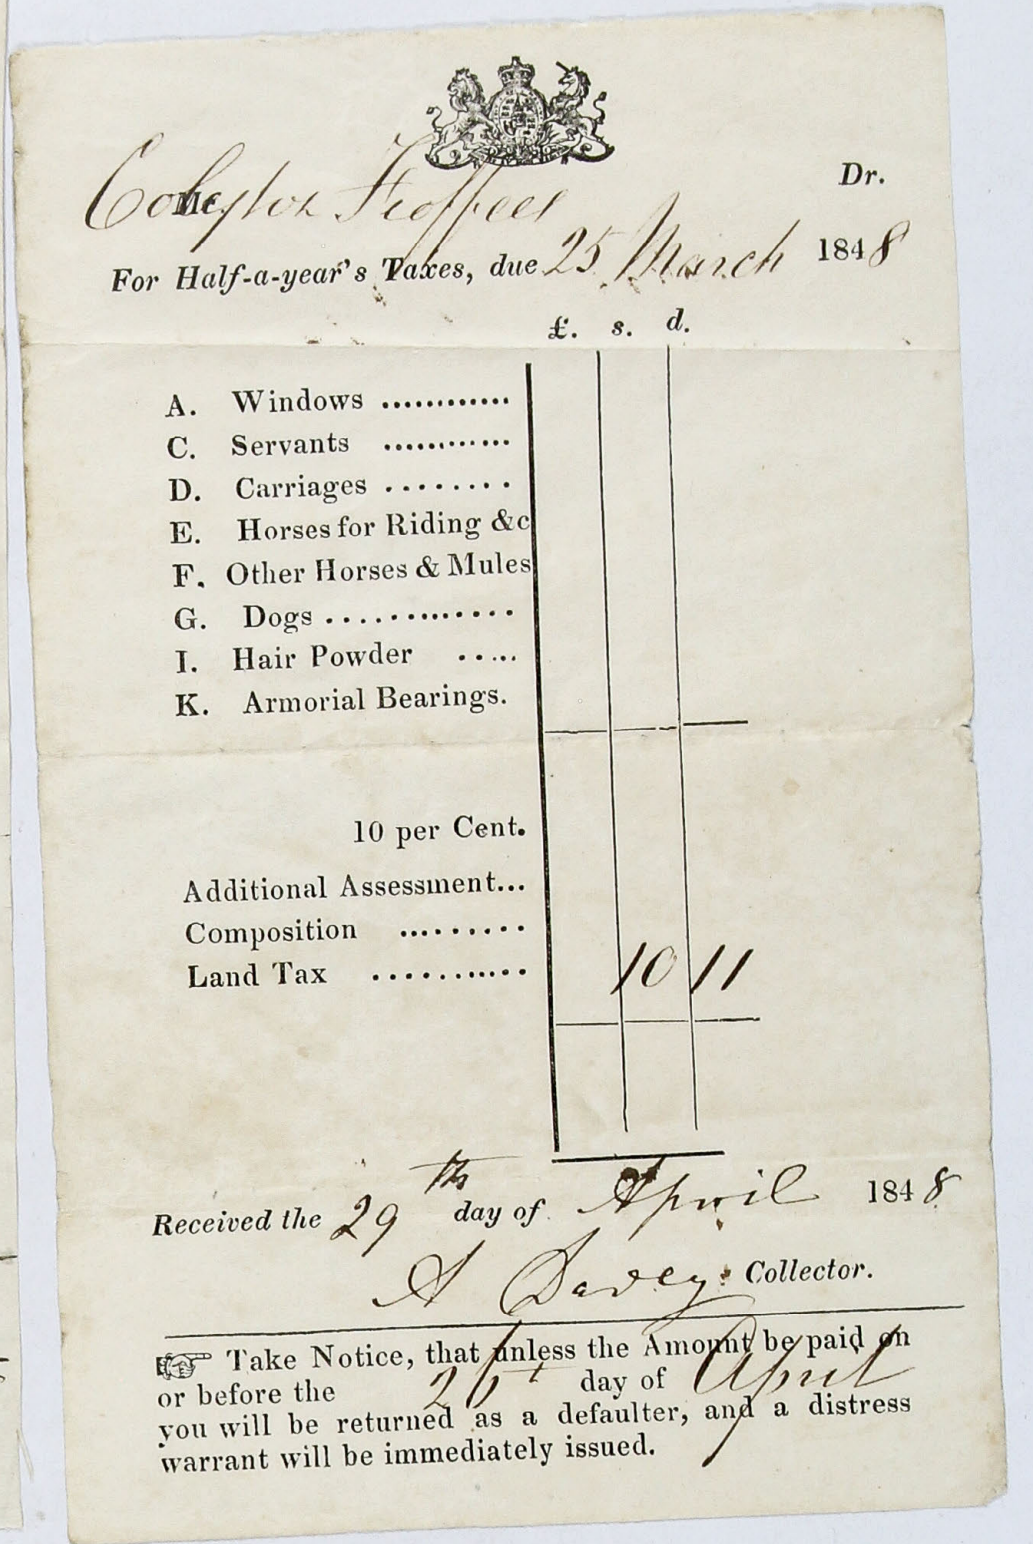 Mr
Colyton Feoffees
Dr.
For Half-a-year's Taxes, due 25 March 1848
£. s. d.
A. Windows ............
C. Servants ............
D. Carriages ........
E. Horses for Riding &c
F. Other Horses & Mules
G. Dogs .............
I. Hair Powder .....
K. Armorial Bearings.
10 per Cent.
Additional Assessment...
Composition .........
Land Tax ........... 10 11
Received the 29th day of April 1848
A Davey Collector.
☞ Take Notice, that unless the Amount be paid on
or before the day of April
you will be returned as a defaulter, and a distress
warrant will be immediately issued.